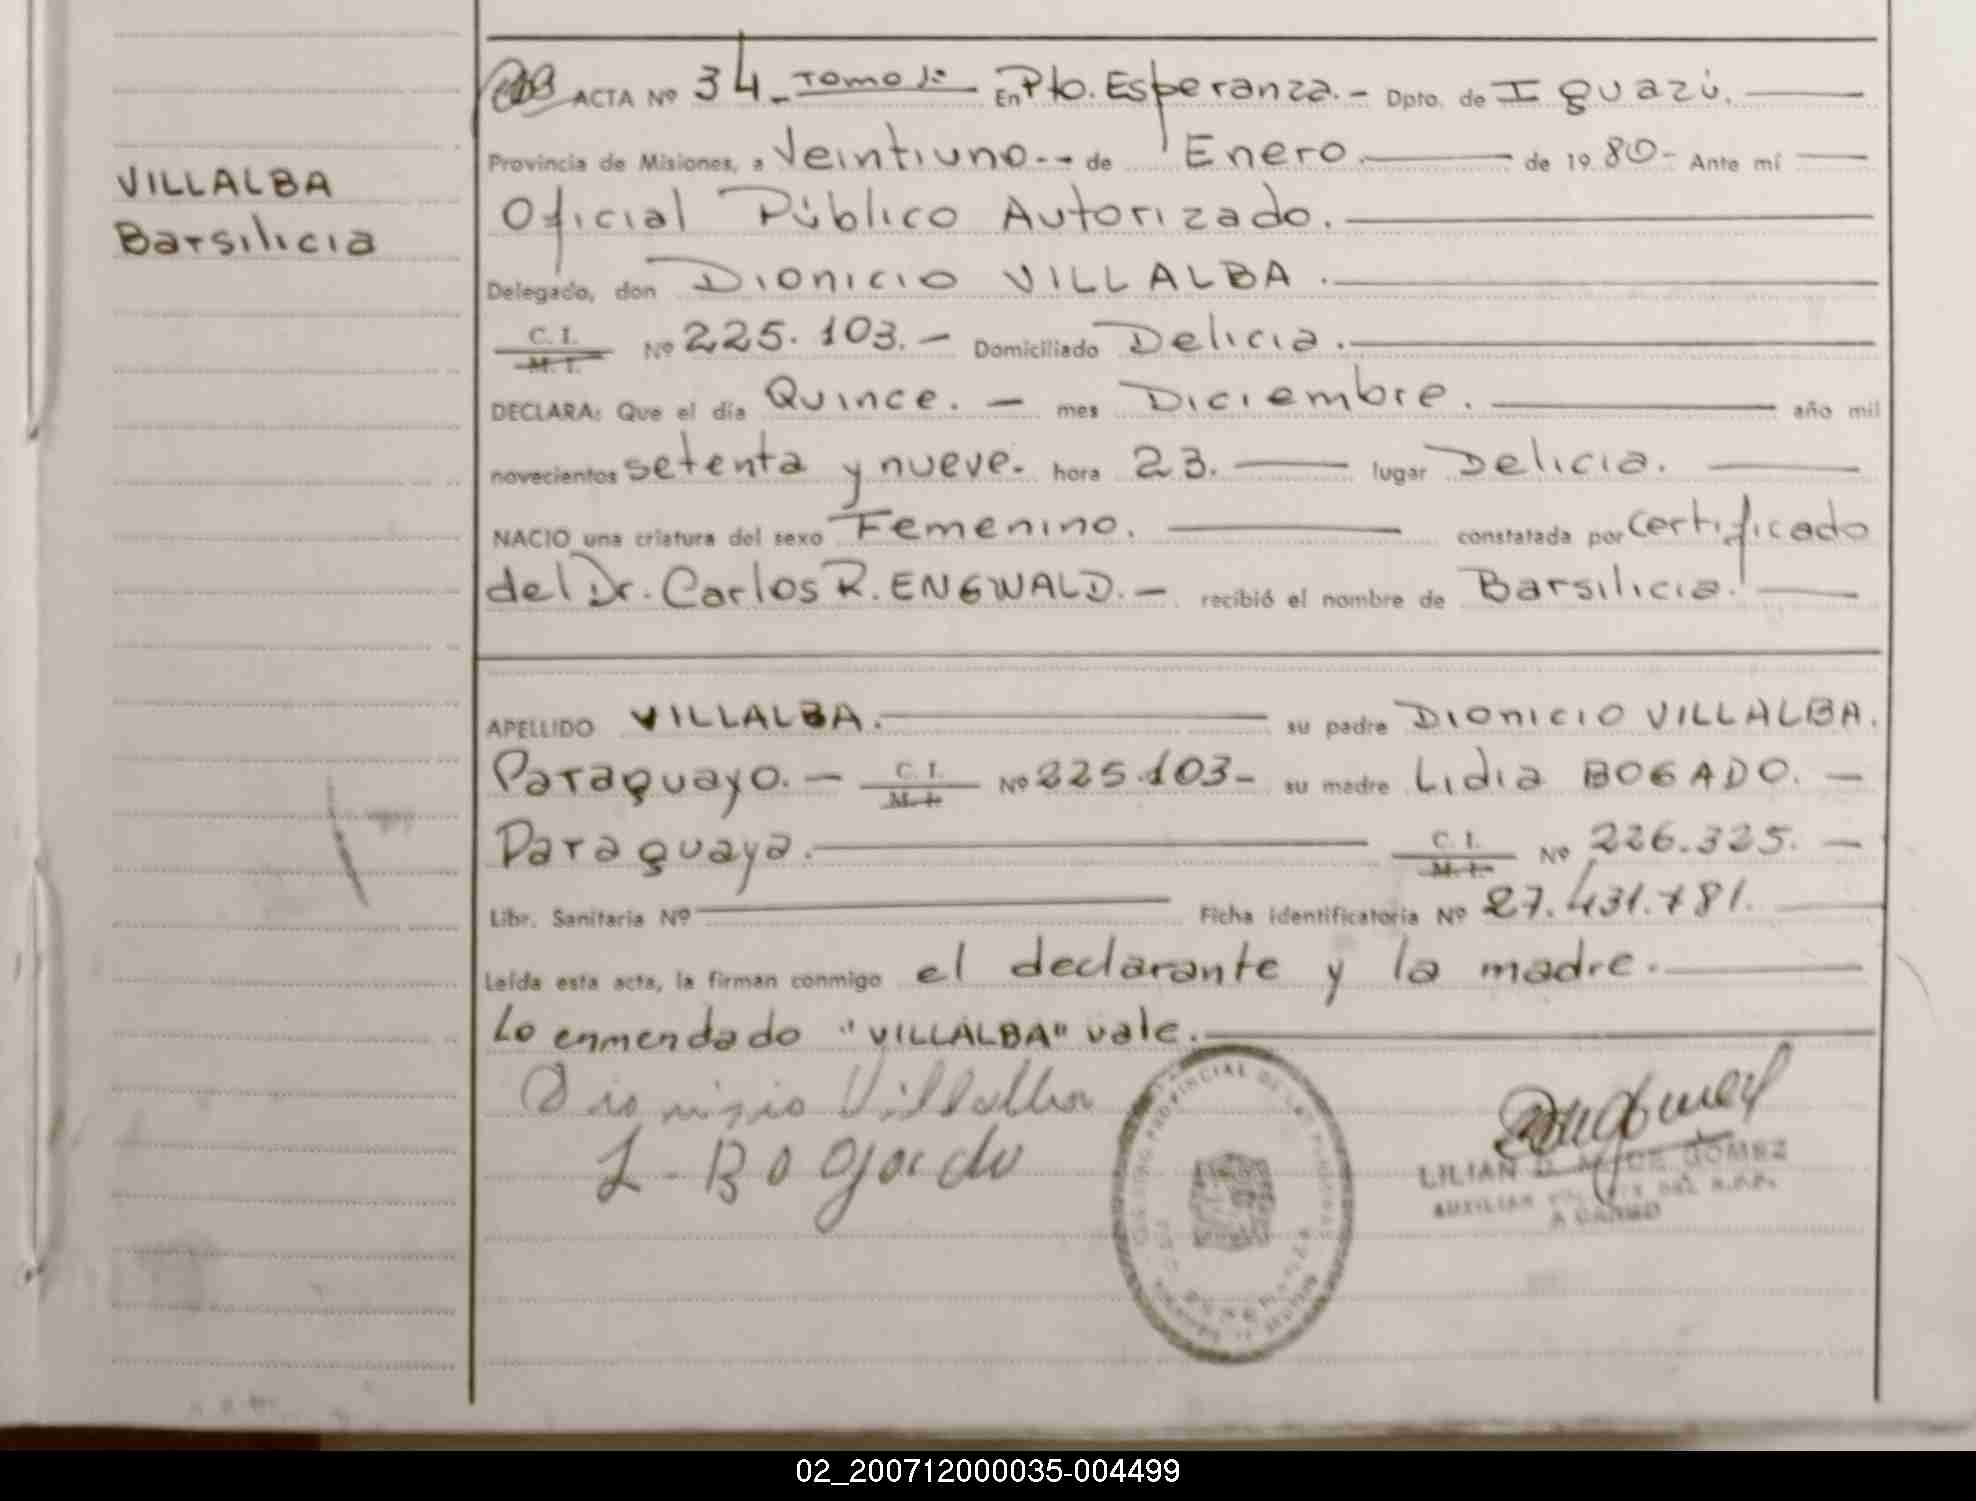 ACTA Nº 34.- Tomo 1º En Pto. Esperanza.- Dpto. de Iguazú.
VILLALBA
Barsilicia
Provincia de Misiones, a Veintiuno.-- de Enero. de 1980- Ante mí
Oficial Público Autorizado.
Delegado, don Dionicio VILLALBA.
C. I.
M. I.
Nº 225.103.- Domiciliado Delicia.
DECLARA: Que el día Quince. - mes Diciembre. año mil
novecientos setenta y nueve. hora 23. lugar Delicia.
NACIO una criatura del sexo Femenino. constatada por Certificado
del Dr. Carlos R. ENGWALD.- recibió el nombre de Barsilicia.
APELLIDO VILLALBA. su padre DIONICIO VILLALBA.
Paraguayo.- C. I. M. I. Nº 225.103- su madre Lidia BOGADO.-
Paraguaya. C. I. M. I. Nº 226.325.-
Libr. Sanitaria Nº Ficha identificatoria Nº 27.431.781.
Leída esta acta, la firman conmigo el declarante y la madre.
Lo enmendado "VILLALBA" vale.
Dionisio Villalba
L. Bogado
LILIAN D. DE GOMEZ
AUXILIAR DEL R.P.P.
A CARGO
02_200712000035-004499